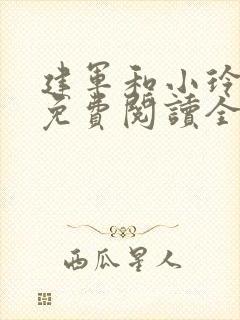 建軍和小玲
免費閱讀全
西瓜星人